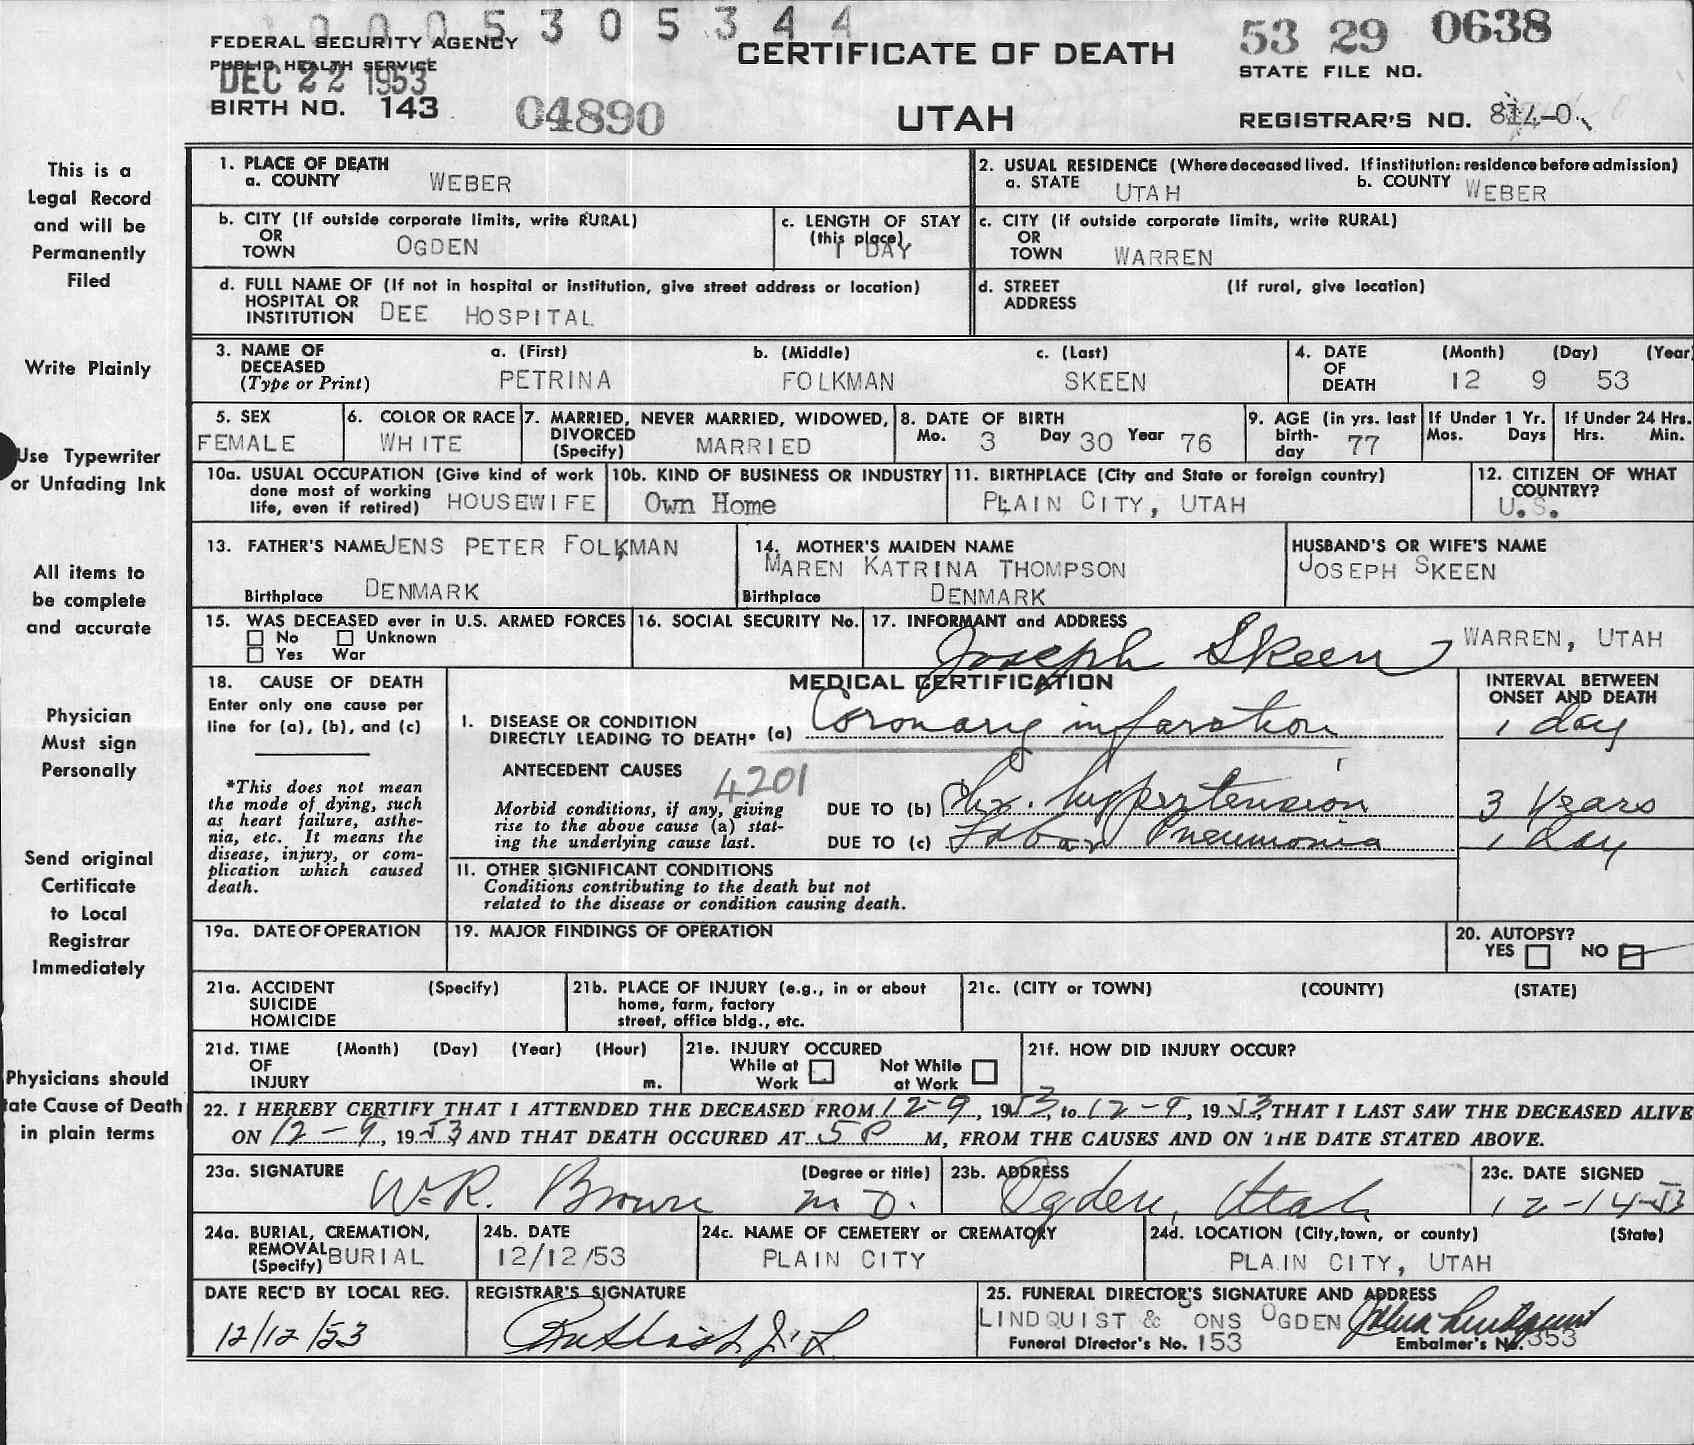 0005305344
FEDERAL SECURITY AGENCY
PUBLIC HEALTH SERVICE
DEC 22 1953
BIRTH NO. 143
04890
CERTIFICATE OF DEATH
UTAH
53 29 0638
STATE FILE NO.
REGISTRAR'S NO.
This is a
Legal Record
and will be
Permanently
Filed
Write Plainly
Use Typewriter
or Unfading Ink
All items to
be complete
and accurate
Physician
Must sign
Personally
Send original
Certificate
to Local
Registrar
Immediately
Physicians should
ate Cause of Death
in plain terms
1. PLACE OF DEATH
a. COUNTY WEBER
2. USUAL RESIDENCE (Where deceased lived. If institution: residence before admission)
a. STATE UTAH b. COUNTY WEBER
b. CITY (If outside corporate limits, write RURAL)
OR
TOWN OGDEN
c. LENGTH OF STAY
(this place)
1 DAY
c. CITY (if outside corporate limits, write RURAL)
OR
TOWN WARREN
d. FULL NAME OF (If not in hospital or institution, give street address or location)
HOSPITAL OR
INSTITUTION DEE HOSPITAL
d. STREET (If rural, give location)
ADDRESS
3. NAME OF DECEASED (Type or Print)
a. (First) b. (Middle) c. (Last)
PETRINA FOLKMAN SKEEN
4. DATE OF DEATH (Month) (Day) (Year
12 9 53
5. SEX
FEMALE
6. COLOR OR RACE
WHITE
7. MARRIED, NEVER MARRIED, WIDOWED,
DIVORCED
(Specify) MARRIED
8. DATE OF BIRTH
Mo. 3 Day 30 Year 76
9. AGE (in yrs. last
birth-
day 77
If Under 1 Yr.
Mos. Days
If Under 24 Hrs.
Hrs. Min.
10a. USUAL OCCUPATION (Give kind of work
done most of working
life, even if retired) HOUSEWIFE
10b. KIND OF BUSINESS OR INDUSTRY
Own Home
11. BIRTHPLACE (City and State or foreign country)
PLAIN CITY, UTAH
12. CITIZEN OF WHAT
COUNTRY?
U.S.
13. FATHER'S NAME JENS PETER FOLKMAN
Birthplace DENMARK
14. MOTHER'S MAIDEN NAME
MAREN KATRINA THOMPSON
Birthplace DENMARK
HUSBAND'S OR WIFE'S NAME
JOSEPH SKEEN
15. WAS DECEASED ever in U.S. ARMED FORCES
No Unknown
Yes War
16. SOCIAL SECURITY No.
17. INFORMANT and ADDRESS
Joseph Skeen WARREN, UTAH
18. CAUSE OF DEATH
Enter only one cause per
line for (a), (b), and (c)
*This does not mean
the mode of dying, such
as heart failure, asthe-
nia, etc. It means the
disease, injury, or com-
plication which caused
death.
MEDICAL CERTIFICATION
INTERVAL BETWEEN
ONSET AND DEATH
I. DISEASE OR CONDITION
DIRECTLY LEADING TO DEATH* (a) Coronary infarction 1 day
ANTECEDENT CAUSES 4201
Morbid conditions, if any, giving
rise to the above cause (a) stat-
ing the underlying cause last.
DUE TO (b) Chr. hypertension 3 Years
DUE TO (c) Lobar Pneumonia 1 Day
II. OTHER SIGNIFICANT CONDITIONS
Conditions contributing to the death but not
related to the disease or condition causing death.
19a. DATE OF OPERATION
19. MAJOR FINDINGS OF OPERATION
20. AUTOPSY?
YES NO
21a. ACCIDENT (Specify)
SUICIDE
HOMICIDE
21b. PLACE OF INJURY (e.g., in or about
home, farm, factory
street, office bldg., etc.
21c. (CITY or TOWN) (COUNTY) (STATE)
21d. TIME (Month) (Day) (Year) (Hour)
OF
INJURY m.
21e. INJURY OCCURED
While at Work Not While at Work
21f. HOW DID INJURY OCCUR?
22. I HEREBY CERTIFY THAT I ATTENDED THE DECEASED FROM 12-9, 1953, to 12-9, 1953, THAT I LAST SAW THE DECEASED ALIVE
ON 12-9, 1953 AND THAT DEATH OCCURED AT 5 P M, FROM THE CAUSES AND ON THE DATE STATED ABOVE.
23a. SIGNATURE (Degree or title)
W.R. Brown M.D.
23b. ADDRESS
Ogden, Utah
23c. DATE SIGNED
12-14-53
24a. BURIAL, CREMATION,
REMOVAL
(Specify) BURIAL
24b. DATE
12/12/53
24c. NAME OF CEMETERY or CREMATORY
PLAIN CITY
24d. LOCATION (City, town, or county) (State)
PLAIN CITY, UTAH
DATE REC'D BY LOCAL REG.
12/12/53
REGISTRAR'S SIGNATURE
25. FUNERAL DIRECTOR'S SIGNATURE AND ADDRESS
LINDQUIST & SONS OGDEN
Funeral Director's No. 153
Embalmer's No. 353